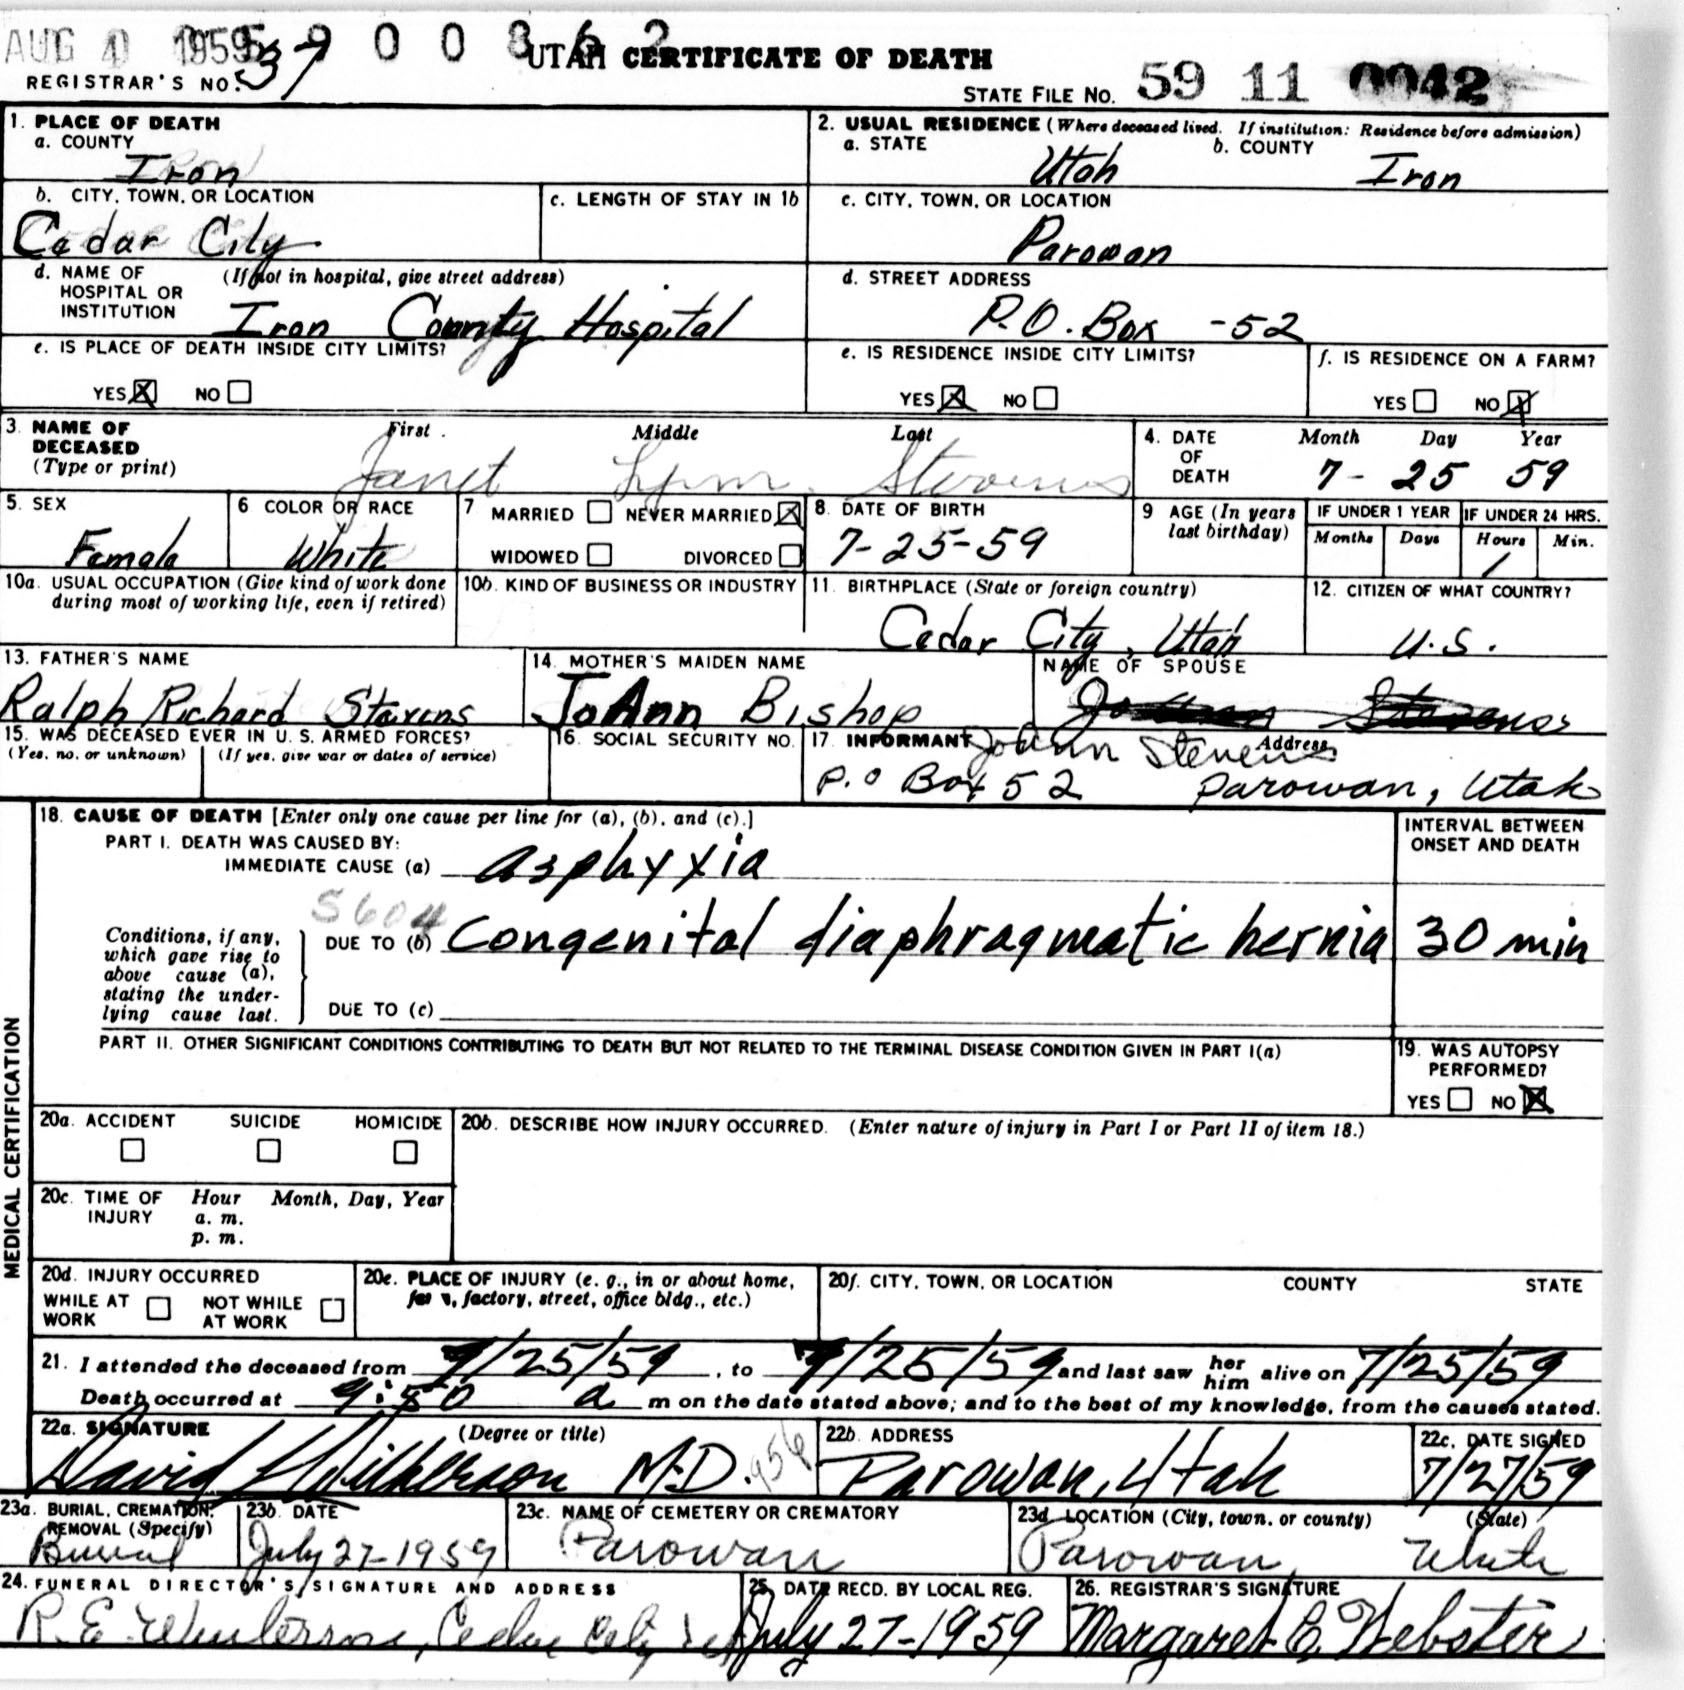 AUG 1959 5 9 0 0 8 6 2
UTAH CERTIFICATE OF DEATH
REGISTRAR'S NO. 37
STATE FILE NO. 59 11 0042
1. PLACE OF DEATH
a. COUNTY
Iron
2. USUAL RESIDENCE (Where deceased lived. If institution: Residence before admission)
a. STATE b. COUNTY
Utah Iron
b. CITY, TOWN, OR LOCATION
Cedar City
c. LENGTH OF STAY IN 1b
c. CITY, TOWN, OR LOCATION
Parowan
d. NAME OF HOSPITAL OR INSTITUTION (If not in hospital, give street address)
Iron County Hospital
d. STREET ADDRESS
P.O. Box -52
e. IS PLACE OF DEATH INSIDE CITY LIMITS?
YES X NO
e. IS RESIDENCE INSIDE CITY LIMITS?
YES X NO
f. IS RESIDENCE ON A FARM?
YES NO X
3. NAME OF DECEASED (Type or print)
First Middle Last
Janet Lynn Stevens
4. DATE OF DEATH
Month Day Year
7- 25 59
5. SEX
Female
6 COLOR OR RACE
White
7 MARRIED NEVER MARRIED X
WIDOWED DIVORCED
8. DATE OF BIRTH
7-25-59
9 AGE (In years last birthday)
IF UNDER 1 YEAR IF UNDER 24 HRS.
Months Days Hours Min.
1
10a. USUAL OCCUPATION (Give kind of work done during most of working life, even if retired)
10b. KIND OF BUSINESS OR INDUSTRY
11. BIRTHPLACE (State or foreign country)
Cedar City, Utah
12. CITIZEN OF WHAT COUNTRY?
U.S.
13. FATHER'S NAME
Ralph Richard Stevens
14. MOTHER'S MAIDEN NAME
JoAnn Bishop
NAME OF SPOUSE
15. WAS DECEASED EVER IN U.S. ARMED FORCES?
(Yes, no, or unknown) (If yes, give war or dates of service)
16. SOCIAL SECURITY NO.
17. INFORMANT JoAnn Stevens Address
P.O Box 52 Parowan, Utah
18. CAUSE OF DEATH [Enter only one cause per line for (a), (b), and (c).]
INTERVAL BETWEEN ONSET AND DEATH
PART I. DEATH WAS CAUSED BY:
IMMEDIATE CAUSE (a) Asphyxia
5604
Conditions, if any, which gave rise to above cause (a), stating the underlying cause last.
DUE TO (b) Congenital diaphragmatic hernia 30 min
DUE TO (c)
PART II. OTHER SIGNIFICANT CONDITIONS CONTRIBUTING TO DEATH BUT NOT RELATED TO THE TERMINAL DISEASE CONDITION GIVEN IN PART I(a)
19. WAS AUTOPSY PERFORMED?
YES NO X
MEDICAL CERTIFICATION
20a. ACCIDENT SUICIDE HOMICIDE
20b. DESCRIBE HOW INJURY OCCURRED. (Enter nature of injury in Part I or Part II of item 18.)
20c. TIME OF INJURY Hour Month, Day, Year
a. m.
p. m.
20d. INJURY OCCURRED
WHILE AT WORK NOT WHILE AT WORK
20e. PLACE OF INJURY (e. g., in or about home, farm, factory, street, office bldg., etc.)
20f. CITY, TOWN, OR LOCATION COUNTY STATE
21. I attended the deceased from 7/25/59, to 7/25/59 and last saw her him alive on 7/25/59
Death occurred at 9:50 a m on the date stated above; and to the best of my knowledge, from the causes stated.
22a. SIGNATURE (Degree or title)
David Wilkerson M.D. 956
22b. ADDRESS
Parowan, Utah
22c. DATE SIGNED
7/27/59
23a. BURIAL, CREMATION, REMOVAL (Specify)
Burial
23b. DATE
July 27-1959
23c. NAME OF CEMETERY OR CREMATORY
Parowan
23d. LOCATION (City, town, or county) (State)
Parowan, Utah
24. FUNERAL DIRECTOR'S SIGNATURE AND ADDRESS
R.E. Cedar City
25. DATE RECD. BY LOCAL REG.
July 27-1959
26. REGISTRAR'S SIGNATURE
Margaret C. Webster